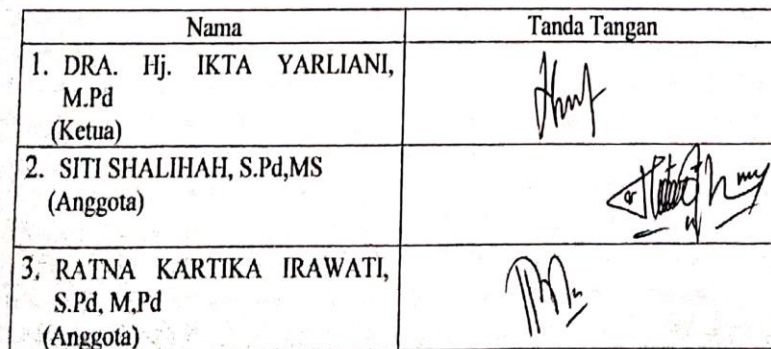 Nama Tanda Tangan
1. DRA. Hj. IKTA YARLIANI,
M.Pd
(Ketua)
2. SITI SHALIHAH, S.Pd,MS
(Anggota)
3. RATNA KARTIKA IRAWATI,
S.Pd, M.Pd
(Anggota)